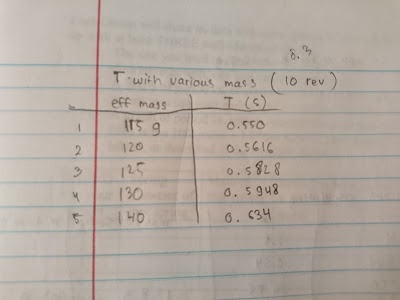 8.3
T with various mass (10 rev)
eff mass T (s)
1 115 g 0.550
2 120 0.5616
3 125 0.5828
4 130 0.5948
5 140 0.634